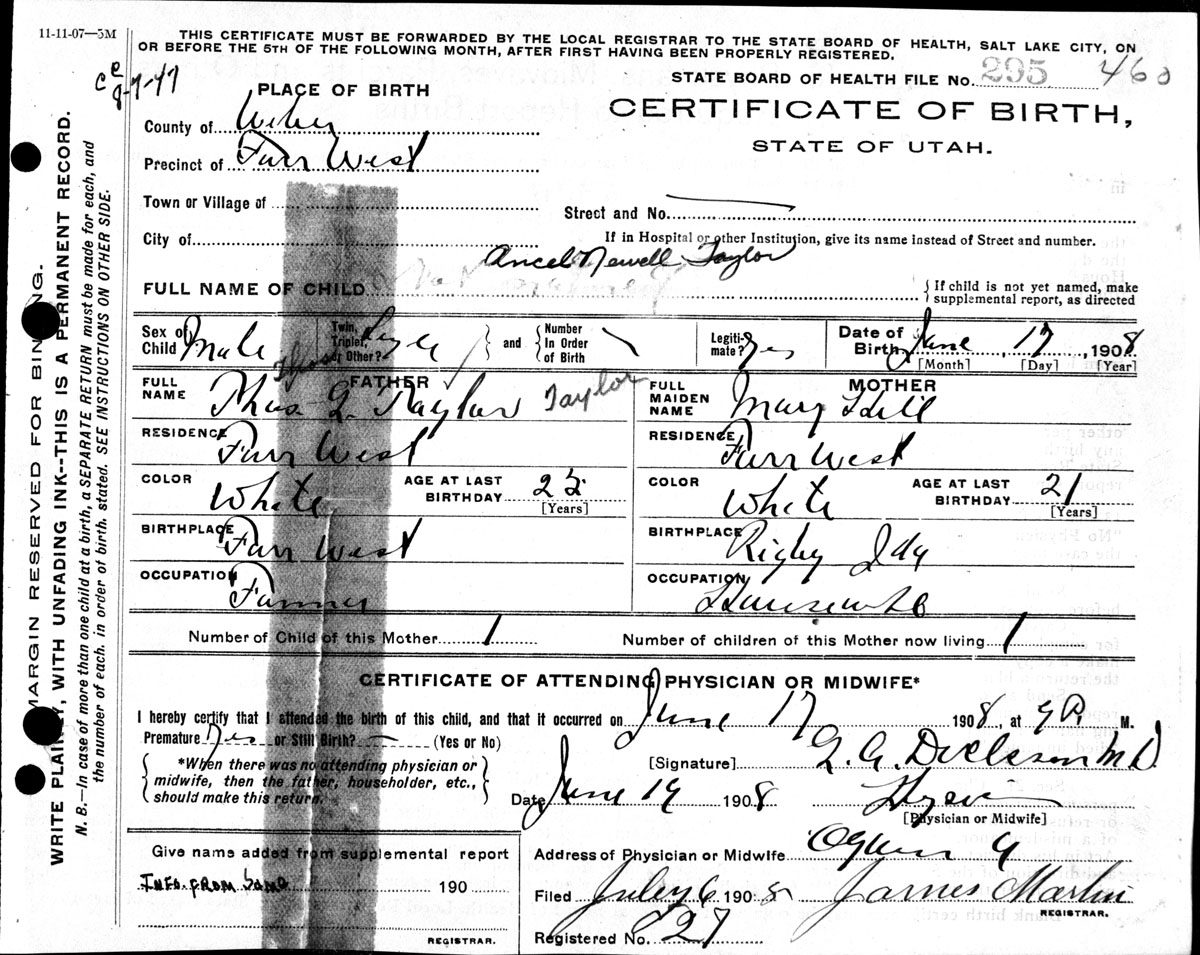 11-11-07—5M
THIS CERTIFICATE MUST BE FORWARDED BY THE LOCAL REGISTRAR TO THE STATE BOARD OF HEALTH, SALT LAKE CITY, ON
OR BEFORE THE 5TH OF THE FOLLOWING MONTH, AFTER FIRST HAVING BEEN PROPERLY REGISTERED.
STATE BOARD OF HEALTH FILE No. 295 460
8-7-47
PLACE OF BIRTH
CERTIFICATE OF BIRTH,
STATE OF UTAH.
County of Weber
Precinct of Farr West
Town or Village of
Street and No.
City of
If in Hospital or other Institution, give its name instead of Street and number.
Ancel Newell Taylor
FULL NAME OF CHILD
{ If child is not yet named, make
supplemental report, as directed
Sex of Child Male
Twin, Triplet, or Other?
and
Number In Order of Birth
Legiti-mate? Yes
Date of Birth June 17, 1908
[Month] [Day] [Year]
FATHER
FULL NAME Thos G. Taylor Taylor
RESIDENCE Farr West
COLOR White
AGE AT LAST BIRTHDAY 25
[Years]
BIRTHPLACE Farr West
OCCUPATION Farmer
MOTHER
FULL MAIDEN NAME Mary Hill
RESIDENCE Farr West
COLOR White
AGE AT LAST BIRTHDAY 21
[Years]
BIRTHPLACE Rigby Ida
OCCUPATION Housewife
Number of Child of this Mother 1
Number of children of this Mother now living 1
CERTIFICATE OF ATTENDING PHYSICIAN OR MIDWIFE*
I hereby certify that I attended the birth of this child, and that it occurred on June 17 1908, at 9 P. M.
Premature Yes or Still Birth? — (Yes or No)
{ *When there was no attending physician or
midwife, then the father, householder, etc.,
should make this return. }
[Signature] M D
Date June 19 1908
[Physician or Midwife]
Give name added from supplemental report
INFO. FROM SAME 190
REGISTRAR.
Address of Physician or Midwife Ogden
Filed July 6 1908 James Martin
REGISTRAR.
Registered No. 127
MARGIN RESERVED FOR BINDING.
WRITE PLAINLY, WITH UNFADING INK--THIS IS A PERMANENT RECORD.
N. B.—In case of more than one child at a birth, a SEPARATE RETURN must be made for each, and
the number of each, in order of birth, stated. SEE INSTRUCTIONS ON OTHER SIDE.